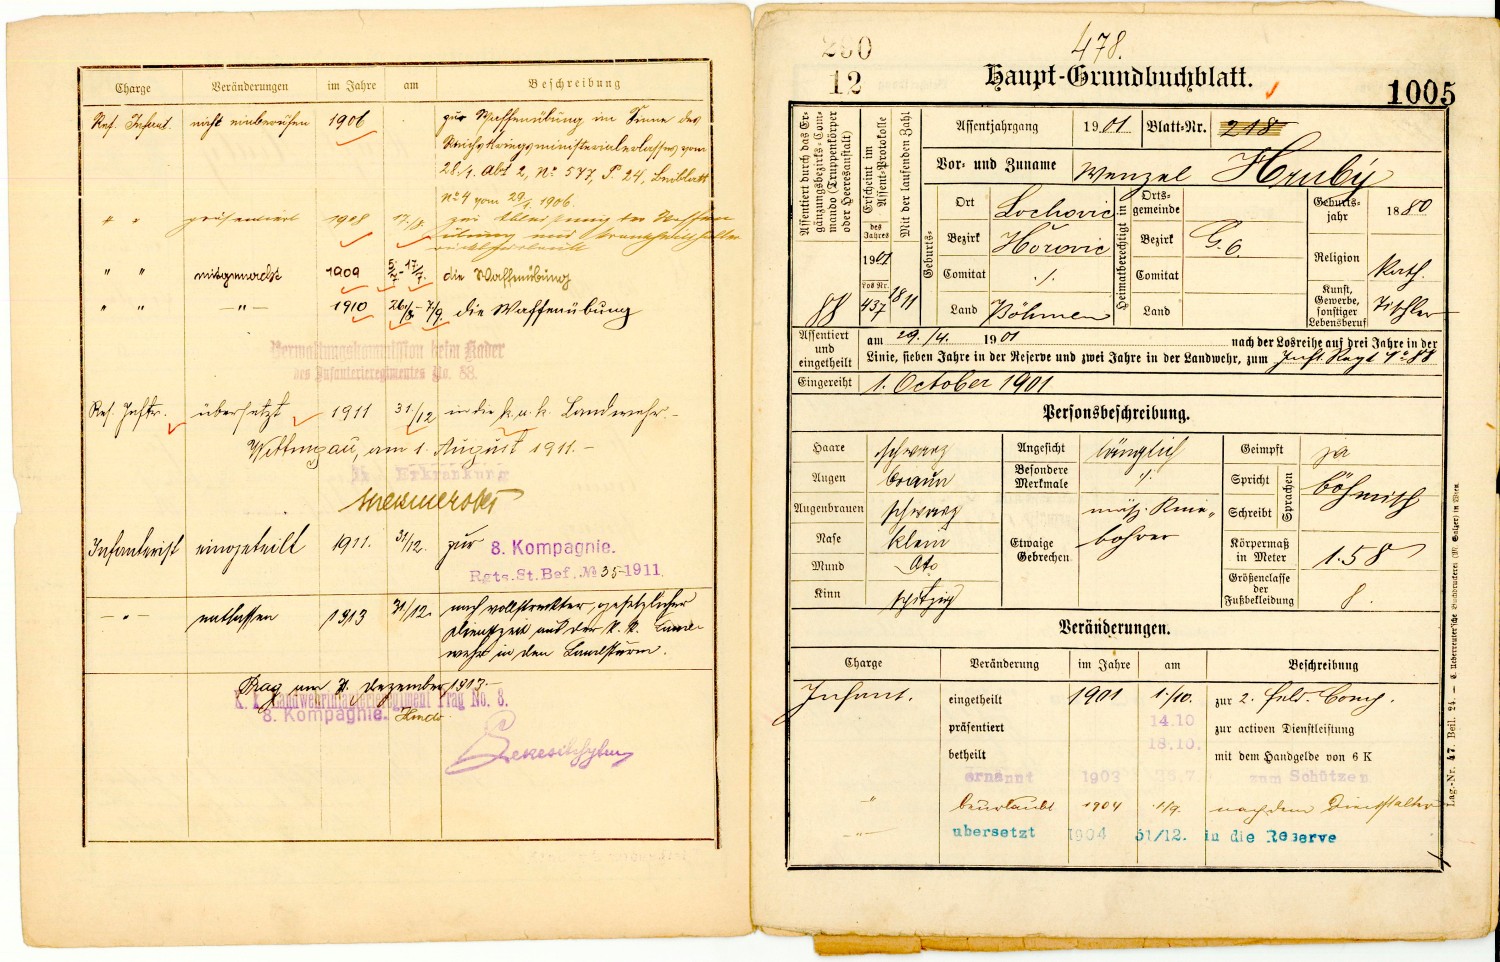 Charge Veränderungen im Jahre am Beschreibung
Res. Infant. nicht einberufen 1906 zur Waffenübung im Sinne des
Reichskriegsministerialerlasses vom
28/1. Abt 2, No 577, P. 24, Beiblatt
No 4 vom 29/1. 1906.
" " präsentiert 1908 17./8. zur Ableistung der Waffen
übung und
" " mitgemacht 1909 5/7.-17/7. die Waffenübung
" " -"- 1910 26/8.-7/9. die Waffenübung
Verwaltungskommission beim Kader
des Infanterieregimentes No. 88.
Res. Inftr. übersetzt 1911 31/12 in die k. k. Landwehr.-
Wittingau, am 1. August 1911.-
Infanterist eingeteilt 1911. 31/12. zur 8. Kompagnie.
Rgts. St. Bef. № 35-1911.
-"- entlassen 1913 31/12. nach vollstreckter, gesetzlicher
Dienstzeit aus der k. k. Land-
wehr in den Landsturm.
Prag am 31. Dezember 1913.-
K. k. Landwehrinfanterieregiment Prag No. 8.
8. Kompagnie.
200
12
478.
Haupt-Grundbuchblatt.
1005
Assentiert durch das Er-
gänzungsbezirks-Com-
mando (Truppenkörper
oder Heeresanstalt)
88
Erscheint im
Assent-Protokolle
des
Jahres
1901
Pos Nr.
437
Mit der laufenden Zahl
1811
Assentjahrgang 1901 Blatt-Nr. 218
Vor- und Zuname Wenzel Hrubý
Geburts-
Ort Lochovic
Bezirk Hořovic
Comitat ./.
Land Böhmen
Heimatberechtigt in
Orts-
gemeinde
Bezirk G. O.
Comitat
Land
Geburts-
jahr 1880
Religion Kath.
Kunst,
Gewerbe,
sonstiger
Lebensberuf Tischler
Assentiert
und
eingetheilt
am 29./4. 1901 nach der Losreihe auf drei Jahre in der
Linie, sieben Jahre in der Reserve und zwei Jahre in der Landwehr, zum Inft. Regt No 88
Eingereiht 1. October 1901
Personsbeschreibung.
Haare schwarz
Augen braun
Augenbrauen schwarz
Nase klein
Mund dto
Kinn spitzig
Angesicht länglich
Besondere
Merkmale ./.
Etwaige
Gebrechen
Geimpft ja
Spricht
Schreibt
Sprachen
böhmisch
Körpermaß
in Meter 1.58
Größenclasse
der
Fußbekleidung 8.
Veränderungen.
Charge Veränderung im Jahre am Beschreibung
Infant. eingetheilt 1901 1./10. zur 2. Feld-Comp.
präsentiert 14.10 zur activen Dienstleistung
betheilt 18.10. mit dem Handgelde von 6 K
ernannt 1903 26.7. zum Schützen
-"- beurlaubt 1904 1/9. nach dem Dienstalter
-"- übersetzt 1904 31/12. in die Reserve
Lag.-Nr. 47. Beil. 24. — C. Ueberreuter'sche Buchdruckerei (M. Salzer) in Wien.